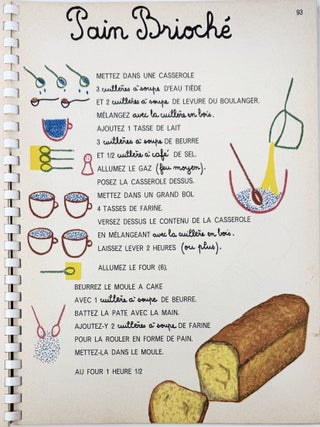 93
Pain Brioché
METTEZ DANS UNE CASSEROLE
3 cuillères à soupe D'EAU TIÈDE
ET 2 cuillères à soupe DE LEVURE DU BOULANGER.
MÉLANGEZ avec la cuillère en bois.
AJOUTEZ 1 TASSE DE LAIT
3 cuillères à soupe DE BEURRE
ET 1/2 cuillère à café DE SEL.
ALLUMEZ LE GAZ (feu moyen).
POSEZ LA CASSEROLE DESSUS.
METTEZ DANS UN GRAND BOL
4 TASSES DE FARINE.
VERSEZ DESSUS LE CONTENU DE LA CASSEROLE
EN MÉLANGEANT avec la cuillère en bois.
LAISSEZ LEVER 2 HEURES (ou plus).
ALLUMEZ LE FOUR (6).
BEURREZ LE MOULE A CAKE
AVEC 1 cuillère à soupe DE BEURRE.
BATTEZ LA PATE AVEC LA MAIN.
AJOUTEZ-Y 2 cuillères à soupe DE FARINE
POUR LA ROULER EN FORME DE PAIN.
METTEZ-LA DANS LE MOULE.
AU FOUR 1 HEURE 1/2